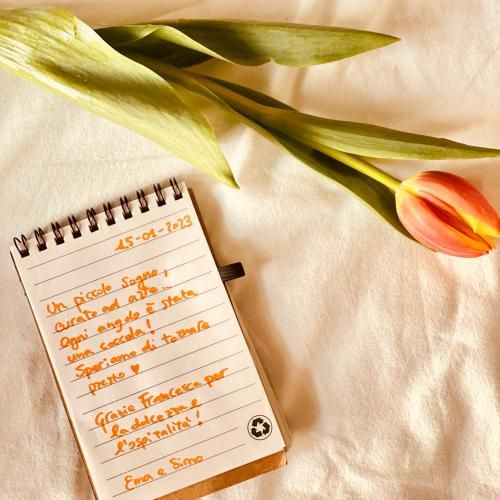 15-01-2023
Un piccolo sogno,
curato ad arte...
ogni angolo è stata
una coccola!
Speriamo di tornare
presto ♥
Grazie Francesca per
la dolcezza e
l'ospitalità!
Ema e Simo